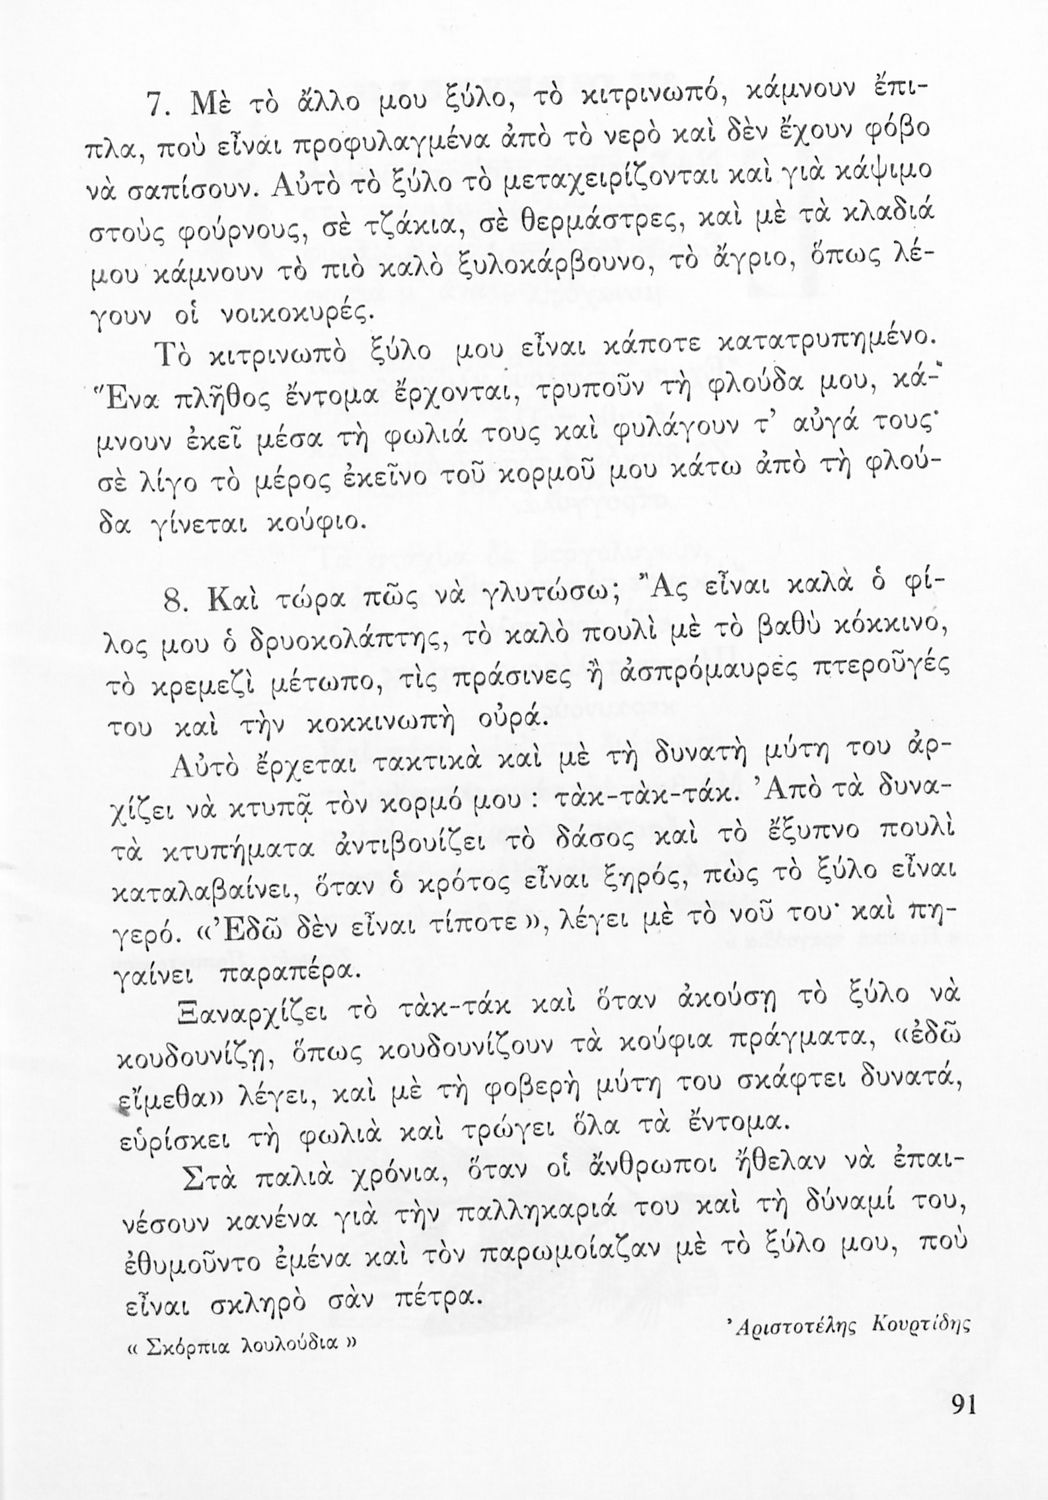 7. Μὲ τὸ ἄλλο μου ξύλο, τὸ κιτρινωπό, κάμνουν ἔπι-
πλα, ποὺ εἶναι προφυλαγμένα ἀπὸ τὸ νερὸ καὶ δὲν ἔχουν φόβο
νὰ σαπίσουν. Αὐτὸ τὸ ξύλο τὸ μεταχειρίζονται καὶ γιὰ κάψιμο
στοὺς φούρνους, σὲ τζάκια, σὲ θερμάστρες, καὶ μὲ τὰ κλαδιά
μου κάμνουν τὸ πιὸ καλὸ ξυλοκάρβουνο, τὸ ἄγριο, ὅπως λέ-
γουν οἱ νοικοκυρές.
Τὸ κιτρινωπὸ ξύλο μου εἶναι κάποτε κατατρυπημένο.
Ἕνα πλῆθος ἔντομα ἔρχονται, τρυποῦν τὴ φλούδα μου, κά-
μνουν ἐκεῖ μέσα τὴ φωλιά τους καὶ φυλάγουν τ’ αὐγά τους·
σὲ λίγο τὸ μέρος ἐκεῖνο τοῦ κορμοῦ μου κάτω ἀπὸ τὴ φλού-
δα γίνεται κούφιο.
8. Καὶ τώρα πῶς νὰ γλυτώσω; Ἂς εἶναι καλὰ ὁ φί-
λος μου ὁ δρυοκολάπτης, τὸ καλὸ πουλὶ μὲ τὸ βαθὺ κόκκινο,
τὸ κρεμεζὶ μέτωπο, τὶς πράσινες ἢ ἀσπρόμαυρες πτεροῦγές
του καὶ τὴν κοκκινωπὴ οὐρά.
Αὐτὸ ἔρχεται τακτικὰ καὶ μὲ τὴ δυνατὴ μύτη του ἀρ-
χίζει νὰ κτυπᾷ τὸν κορμό μου : τὰκ-τὰκ-τάκ. Ἀπὸ τὰ δυνα-
τὰ κτυπήματα ἀντιβουίζει τὸ δάσος καὶ τὸ ἔξυπνο πουλὶ
καταλαβαίνει, ὅταν ὁ κρότος εἶναι ξηρός, πὼς τὸ ξύλο εἶναι
γερό. «Ἐδῶ δὲν εἶναι τίποτε», λέγει μὲ τὸ νοῦ του· καὶ πη-
γαίνει παραπέρα.
Ξαναρχίζει τὸ τὰκ-τάκ καὶ ὅταν ἀκούσῃ τὸ ξύλο νὰ
κουδουνίζῃ, ὅπως κουδουνίζουν τὰ κούφια πράγματα, «ἐδῶ
εἴμεθα» λέγει, καὶ μὲ τὴ φοβερὴ μύτη του σκάφτει δυνατά,
εὑρίσκει τὴ φωλιὰ καὶ τρώγει ὅλα τὰ ἔντομα.
Στὰ παλιὰ χρόνια, ὅταν οἱ ἄνθρωποι ἤθελαν νὰ ἐπαι-
νέσουν κανένα γιὰ τὴν παλληκαριά του καὶ τὴ δύναμί του,
ἐθυμοῦντο ἐμένα καὶ τὸν παρωμοίαζαν μὲ τὸ ξύλο μου, ποὺ
εἶναι σκληρὸ σὰν πέτρα.
« Σκόρπια λουλούδια »
Ἀριστοτέλης Κουρτίδης
91